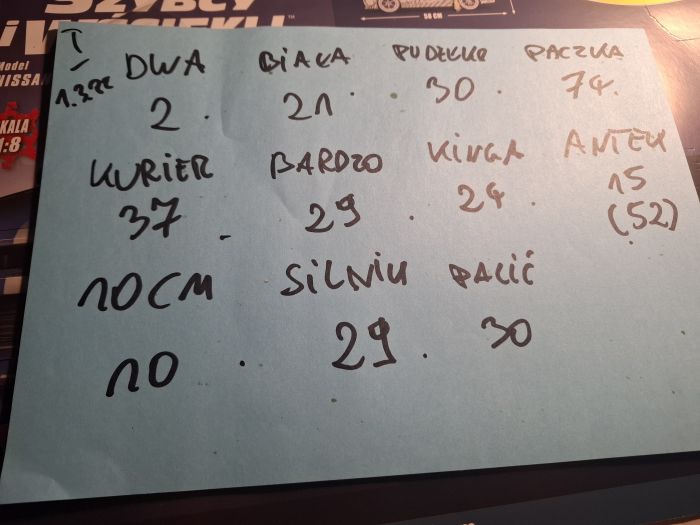 SZYBCY
i WŚCIEKLI
50 CM
Model
NISSA
SKALA
1:8
I
DWA BIAŁA PUDEŁKO PACZKA
2. 21. 30. 74.
KURIER BARDZO KINGA ANTEK
37. 29. 24. 15
(52)
10CM SILNIK PALIĆ
10. 29. 30